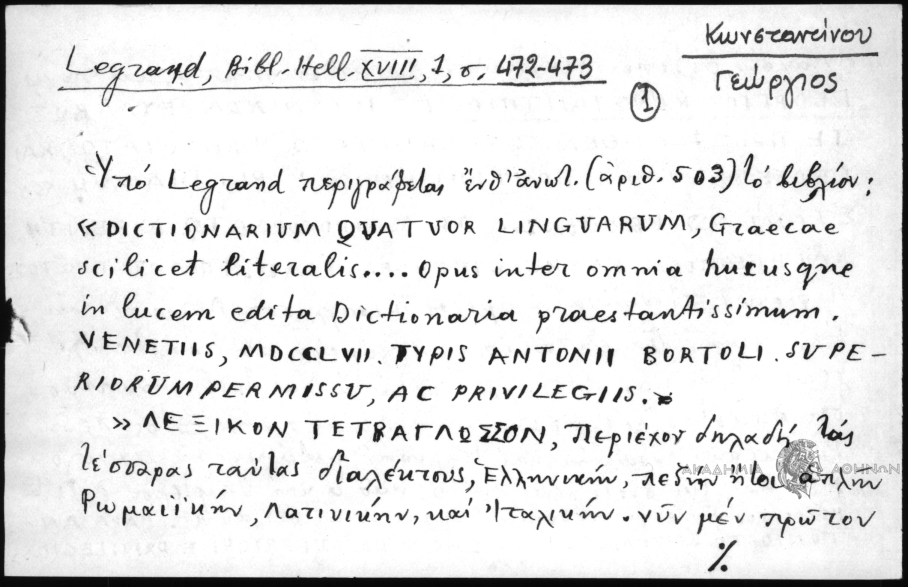 Κωνσταντίνου
Γεώργιος
Legrand, Bibl. Hell. XVIII, 1, σ. 472-473
1
Ὑπό Legrand περιγράφεται ἐνθ' ἀνωτ. (ἀριθ. 503) τό βιβλίον:
«DICTIONARIUM QUATUOR LINGUARUM, Graecae
scilicet literalis.... Opus inter omnia hucusque
in lucem edita Dictionaria praestantissimum.
VENETIIS, MDCCLVII. TYPIS ANTONII BORTOLI. SUPE-
RIORUM PERMISSU, AC PRIVILEGIIS.
» ΛΕΞΙΚΟΝ ΤΕΤΡΑΓΛΩΣΣΟΝ, Περιέχον δηλαδή τάς
τέσσαρας ταύτας διαλέκτους, Ἑλληνικήν, πεζήν ἤτοι ἁπλῆν
Ρωμαιϊκήν, Λατινικήν, καί Ἰταλικήν. νῦν μέν πρῶτον
·/.
ΑΚΑΔΗΜΙΑ ΑΘΗΝΩΝ